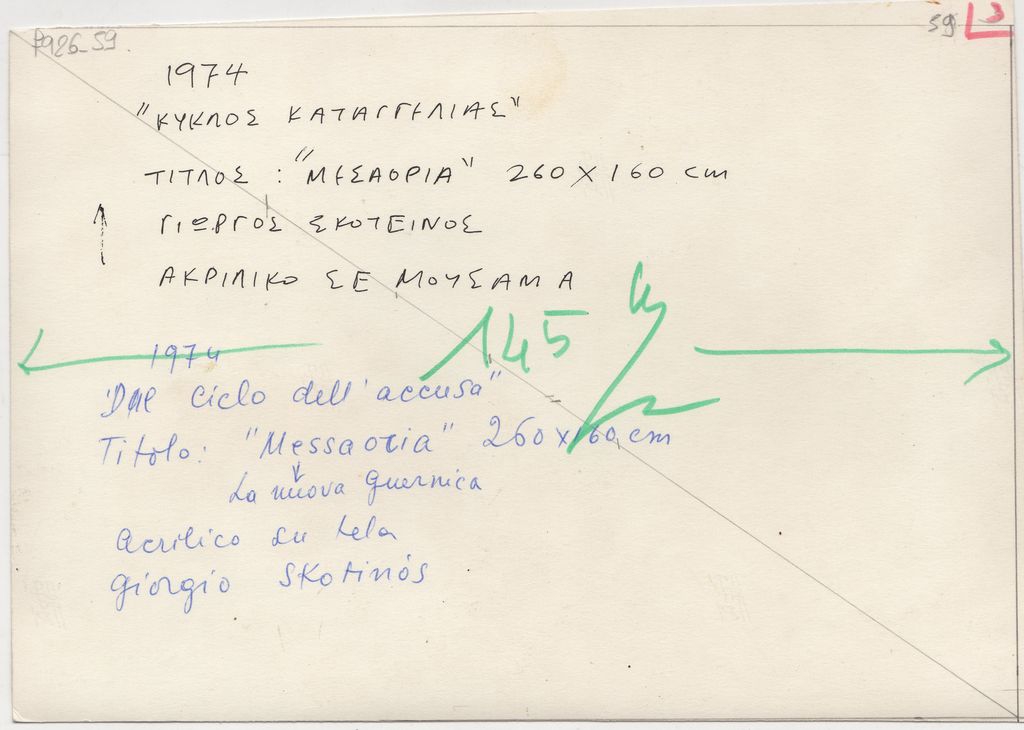 P926-59.
59 3
1974
"ΚΥΚΛΟΣ ΚΑΤΑΓΓΕΛΙΑΣ"
ΤΙΤΛΟΣ : "ΜΕΣΑΟΡΙΑ" 260 X 160 cm
ΓΙΩΡΓΟΣ ΣΚΟΤΕΙΝΟΣ
ΑΚΡΙΛΙΚΟ ΣΕ ΜΟΥΣΑΜΑ
145
1974
"Dal ciclo dell'accusa"
Titolo: "Messaoria" 260 x 160 cm
La nuova Guernica
Acrilico su tela
Giorgio Skotinós